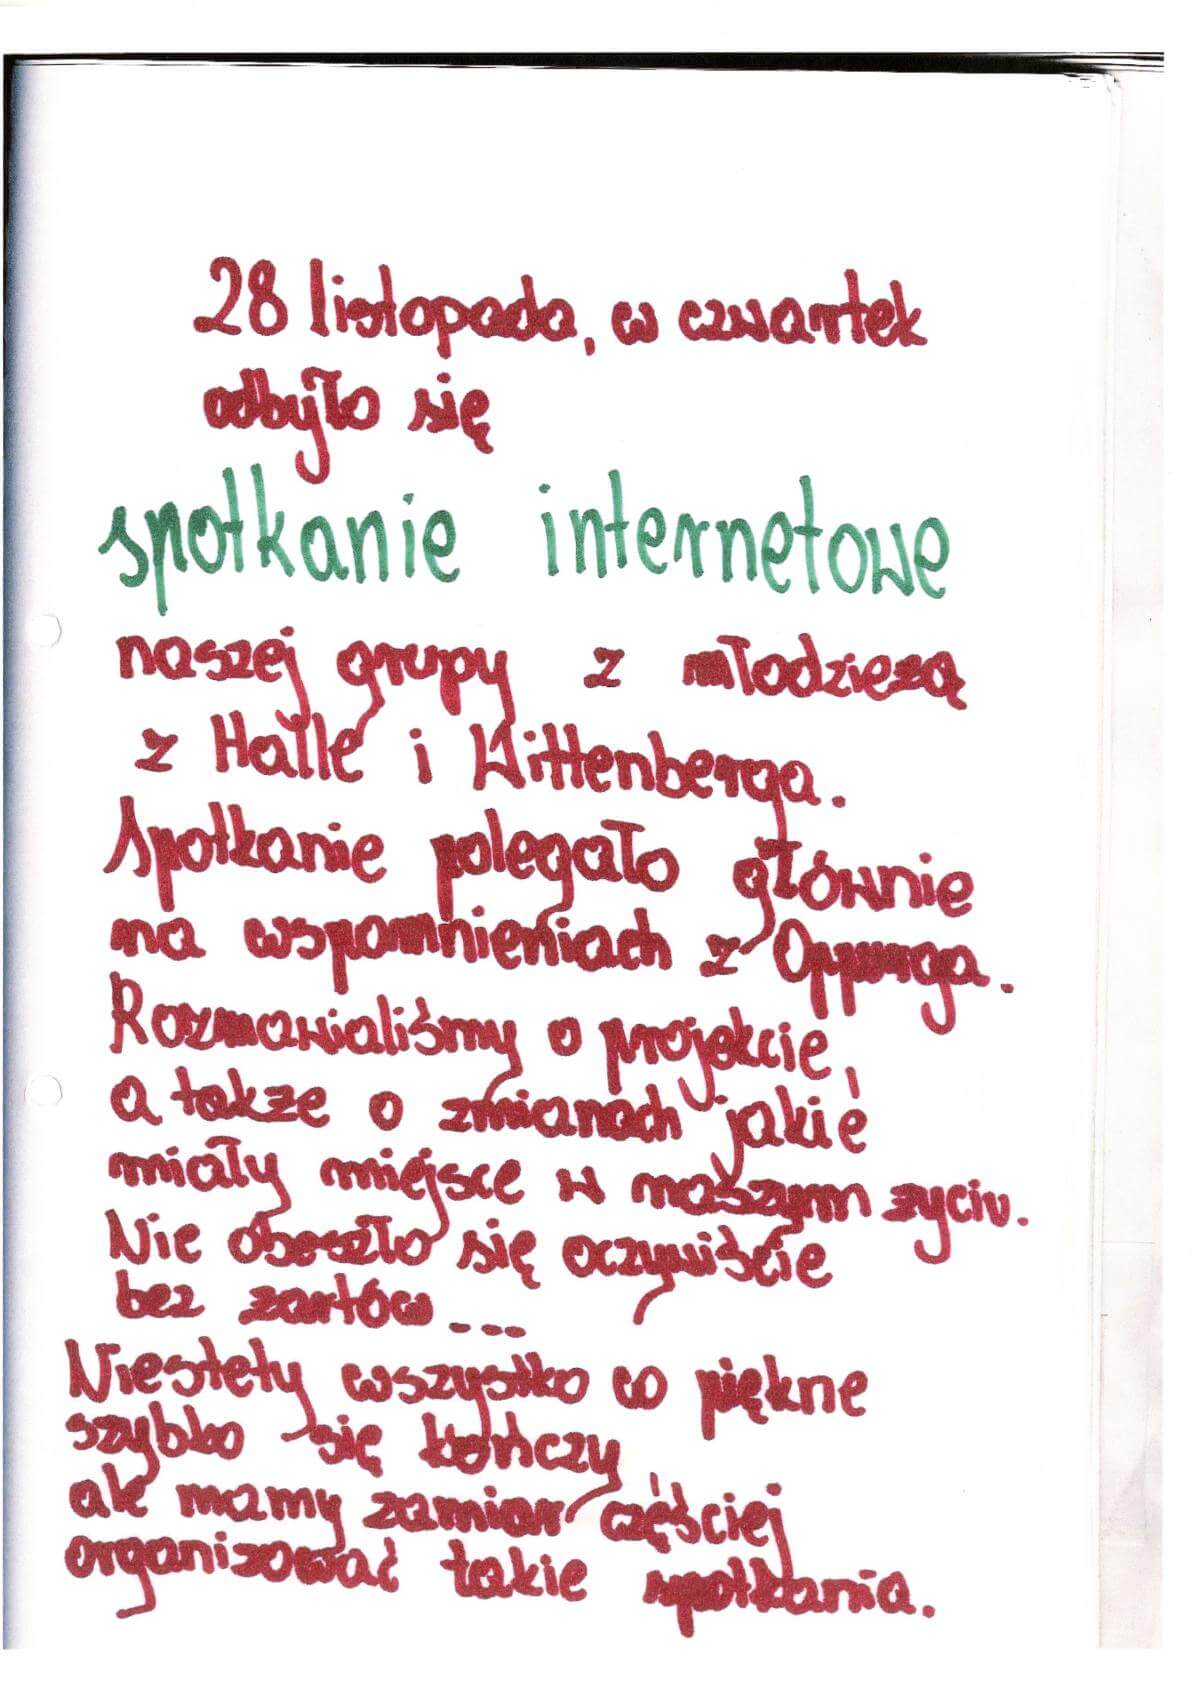 28 listopada, w czwartek
odbyło się
spotkanie internetowe
naszej grupy z młodzieżą
z Halle i Wittenberga.
Spotkanie polegało głównie
na wspomnieniach z Oppurga.
Rozmawialiśmy o projekcie,
a także o zmianach jakie
miały miejsce w naszym życiu.
Nie obeszło się oczywiście
bez żartów...
Niestety wszystko co piękne
szybko się kończy,
ale mamy zamiar częściej
organizować takie spotkania.